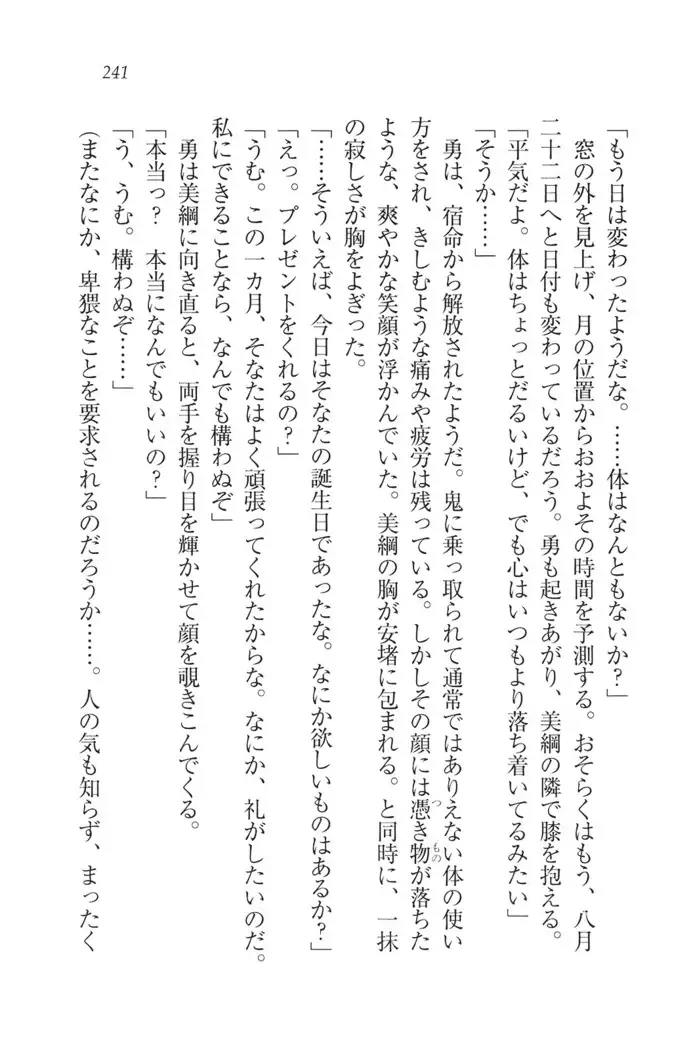 241
「もう日は変わったようだな。……体はなんともないか？」
　窓の外を見上げ、月の位置からおおよその時間を予測する。おそらくはもう、八月
二十二日へと日付も変わっているだろう。勇も起きあがり、美綱の隣で膝を抱える。
「平気だよ。体はちょっとだるいけど、でも心はいつもより落ち着いてるみたい」
「そうか……」
　勇は、宿命から解放されたようだ。鬼に乗っ取られて通常ではありえない体の使い
方をされ、きしむような痛みや疲労は残っている。しかしその顔には憑き物が落ちた
ような、爽やかな笑顔が浮かんでいた。美綱の胸が安堵に包まれる。と同時に、一抹
の寂しさが胸をよぎった。
「……そういえば、今日はそなたの誕生日であったな。なにか欲しいものはあるか？」
「えっ。プレゼントをくれるの？」
「うむ。この一カ月、そなたはよく頑張ってくれたからな。なにか、礼がしたいのだ。
私にできることなら、なんでも構わぬぞ」
　勇は美綱に向き直ると、両手を握り目を輝かせて顔を覗きこんでくる。
「本当っ？　本当になんでもいいの？」
「う、うむ。構わぬぞ……」
（またなにか、卑猥なことを要求されるのだろうか……。人の気も知らず、まったく